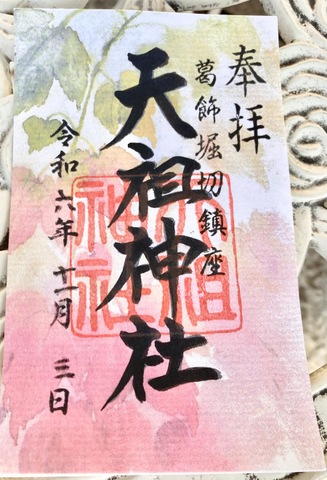 奉拝
葛飾堀切鎮座
天祖神社
天祖神社
令和六年十一月三日